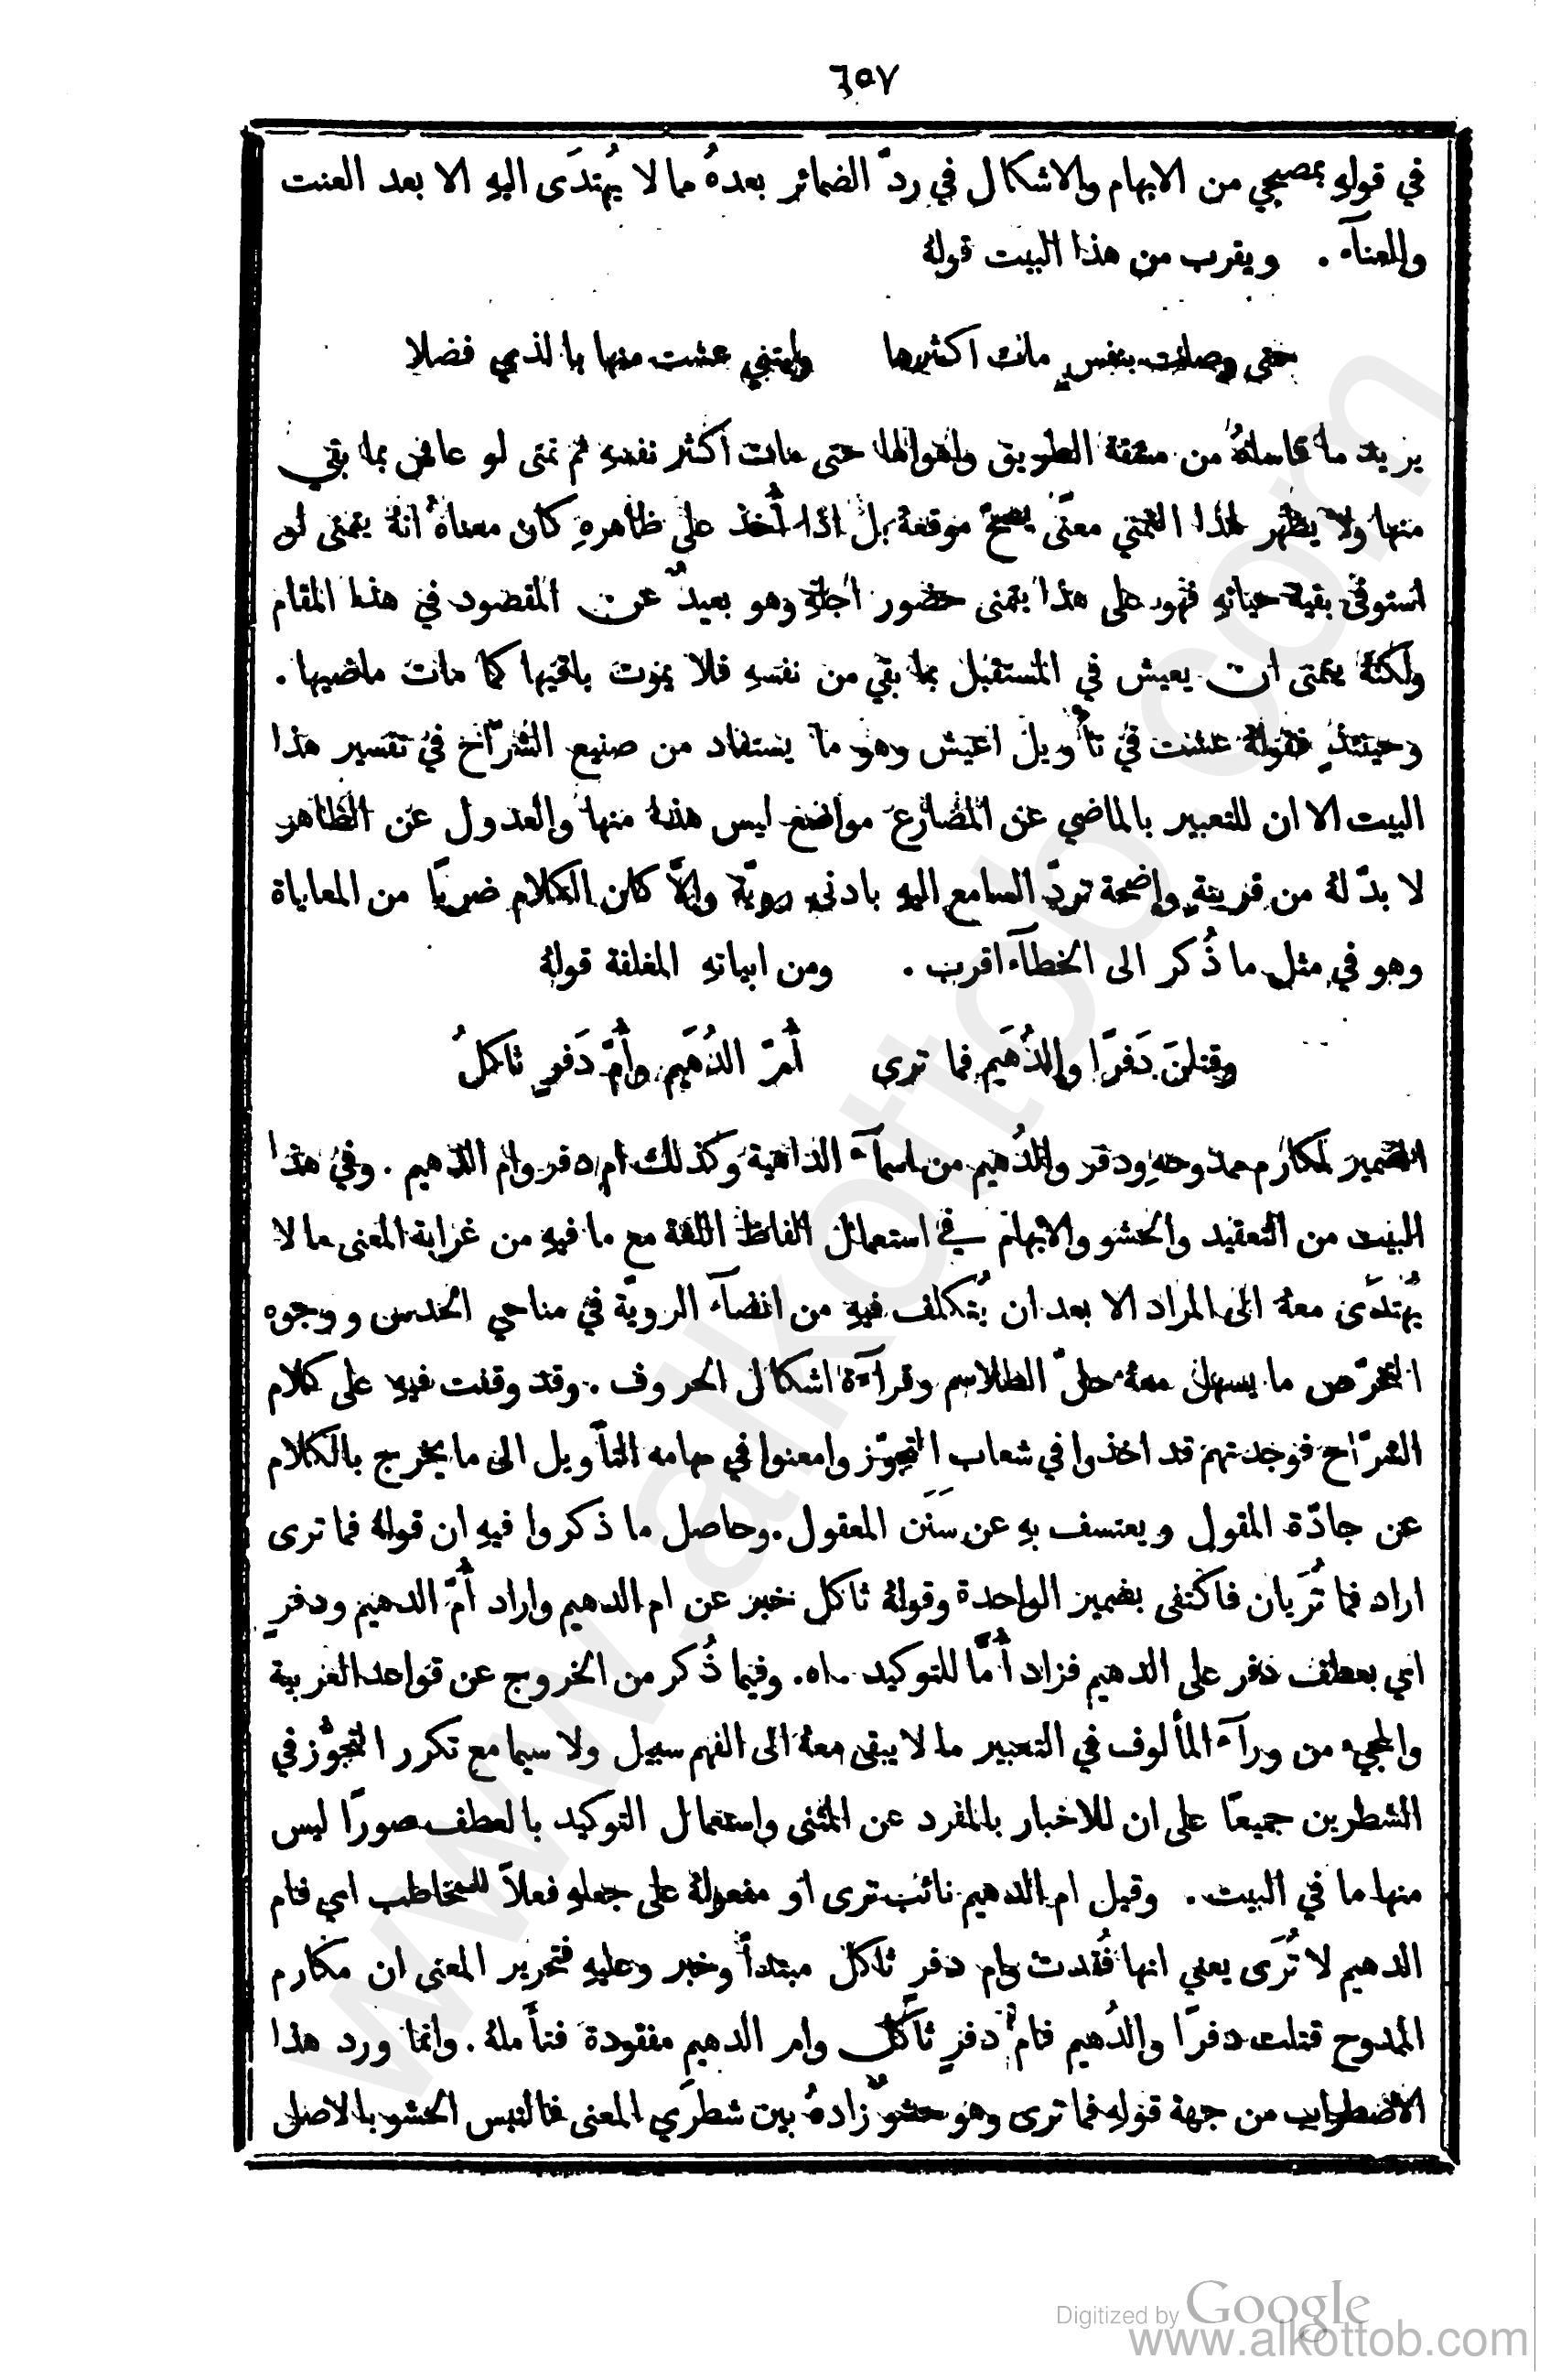 ٦٥٧
في قولهِ بمصبحي من الابهام والاشكال في ردّ الضمائر بعدهُ ما لا يُهتدَى اليهِ الا بعد العنت
والعنآء . ويقرب من هذا البيت قولهُ
حتى وصلت بنفسٍ مات اكثرها وليتني عشت منها بالذي فضلا
يريد ما قاساهُ من مشقة الطريق واهوالها حتى مات اكثر نفسهِ ثم تمنى لو عاش بما بقي
منها ولا يظهر لهذا التمني معنًى يصحّ موقعهُ بل اذا أُخذ على ظاهرهِ كان معناهُ انهُ يتمنى لو
استوفى بقية حياتهِ فهو على هذا يتمنى حضور اجلهِ وهو بعيدٌ عن المقصود في هذا المقام
ولكنهُ يتمنى ان يعيش في المستقبل بما بقي من نفسهِ فلا يموت باقيها كما مات ماضيها .
وحينئذٍ فقولهُ عشت في تأويل اعيش وهو ما يستفاد من صنيع الشرّاح في تفسير هذا
البيت الا ان للتعبير بالماضي عن المضارع مواضع ليس هذا منها والعدول عن الظاهر
لا بدّ لهُ من قرينةٍ واضحة تردّ السامع اليهِ بادنى رويّة والّا كان الكلام ضربًا من المعاياة
وهو في مثل ما ذُكر الى الخطآء اقرب . ومن ابياتهِ المغلقة قولهُ
وقتلنَ دَفرًا والدُهَيم فما ترى أُمّ الدُهَيم وأُمّ دَفرٍ ثاكلُ
الضمير لمكارم ممدوحهِ ودفر والدُهيم من اسمآء الداهية وكذلك ام دفر وام الدهيم . وفي هذا
البيت من التعقيد والحشو والابهام في استعمال الفاظ اللغة مع ما فيهِ من غرابة المعنى ما لا
يُهتدَى معهُ الى المراد الا بعد ان يُتكلف فيهِ من انضآء الرويّة في مناحي الحدس ووجوه
التخرّص ما يسهل معهُ حلّ الطلاسم وقرآءة اشكال الحروف . وقد وقفت فيهِ على كلام
الشرّاح فوجدتهم قد اخذوا في شعاب التجوّز وامعنوا في مهامه التأويل الى ما يخرج بالكلام
عن جادّة المقول ويعتسف بهِ عن سَنَن المعقول . وحاصل ما ذكروا فيهِ ان قولهُ فما ترى
اراد فما تُرَيان فاكتفى بضمير الواحدة وقولهُ ثاكل خبر عن ام الدهيم واراد أُمّ الدهيم ودفرٍ
اي بعطف دفر على الدهيم فزاد أُمًّا للتوكيد . اه . وفيما ذُكر من الخروج عن قواعد العربية
والمجيء من ورآء المألوف في التعبير ما لا يبقى معهُ الى الفهم سبيل ولا سيما مع تكرر التجوُّز في
الشطرين جميعًا على ان للاخبار بالمفرد عن المثنى واستعمال التوكيد بالعطف صورًا ليس
منها ما في البيت . وقيل ام الدهيم نائب ترى او مفعولهُ على جعلهِ فعلًا للمخاطب اي فام
الدهيم لا تُرَى يعني انها فُقدت وام دفرٍ ثاكل مبتدأ وخبر وعليهِ فتحرير المعنى ان مكارم
الممدوح قتلت دفرًا والدُهيم فام دفرٍ ثاكل وام الدهيم مفقودة فتأملهُ . وانما ورد هذا
الاضطراب من جهة قولهِ فما ترى وهو حشوٌ زادهُ بين شطرَي المعنى فالتبس الحشو بالاصل
Digitized by Google
www.alkottob.com
www.alkottob.com